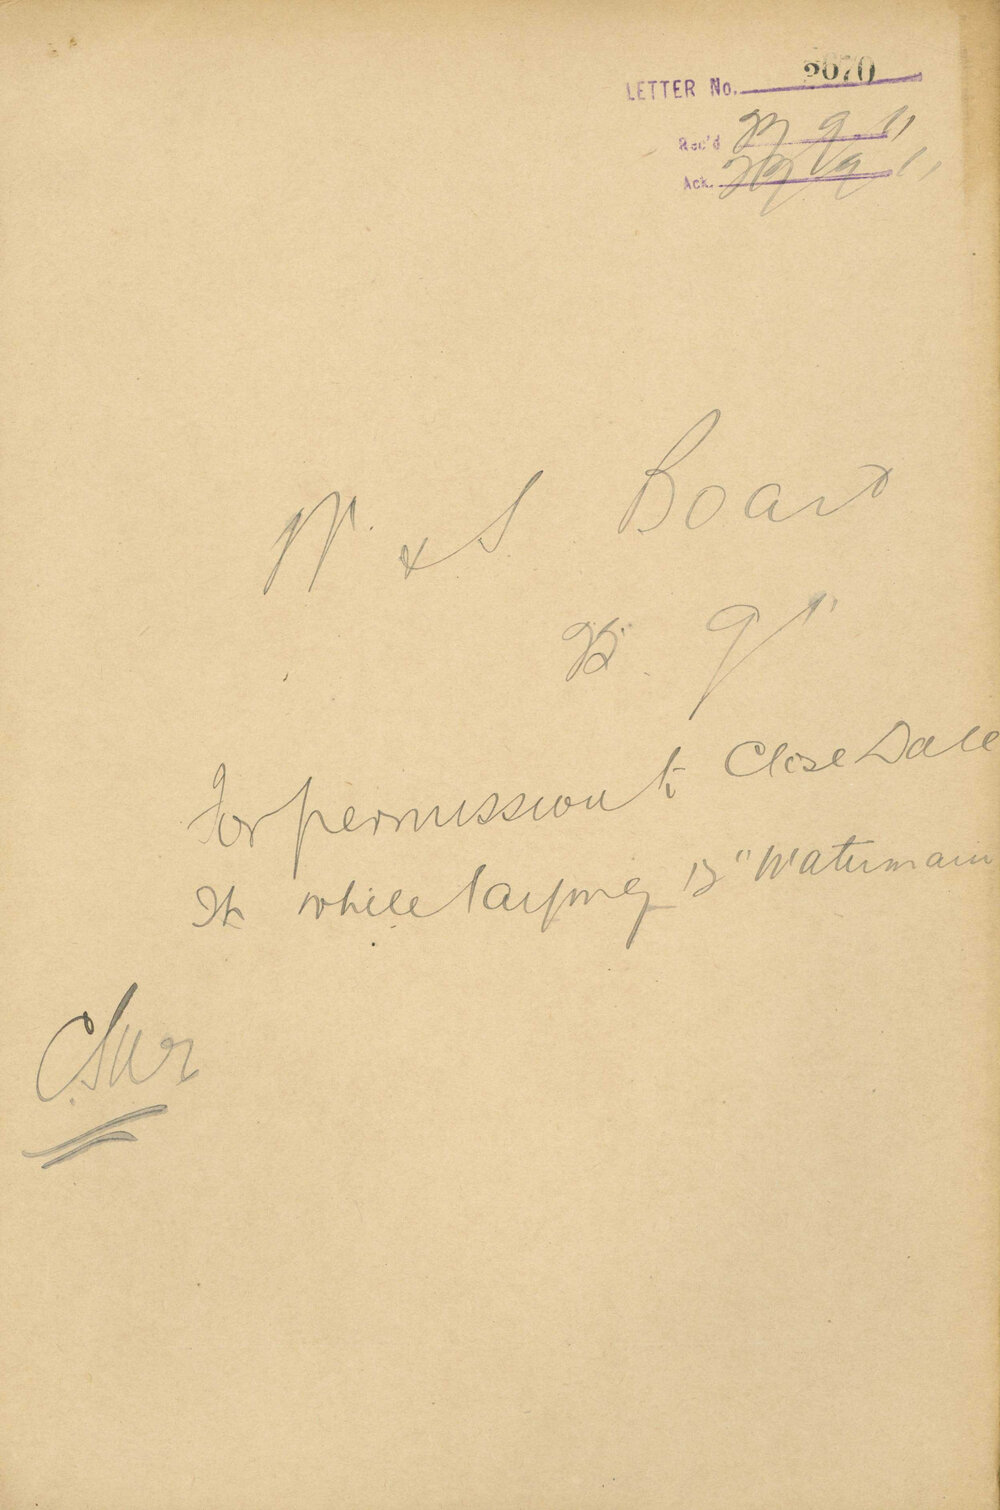 LETTER No. 2070
Rec'd 9 11
Ack. 9 11
W. & S. Board
9 11
For permission to Close Dale
St while laying 12" Watermain